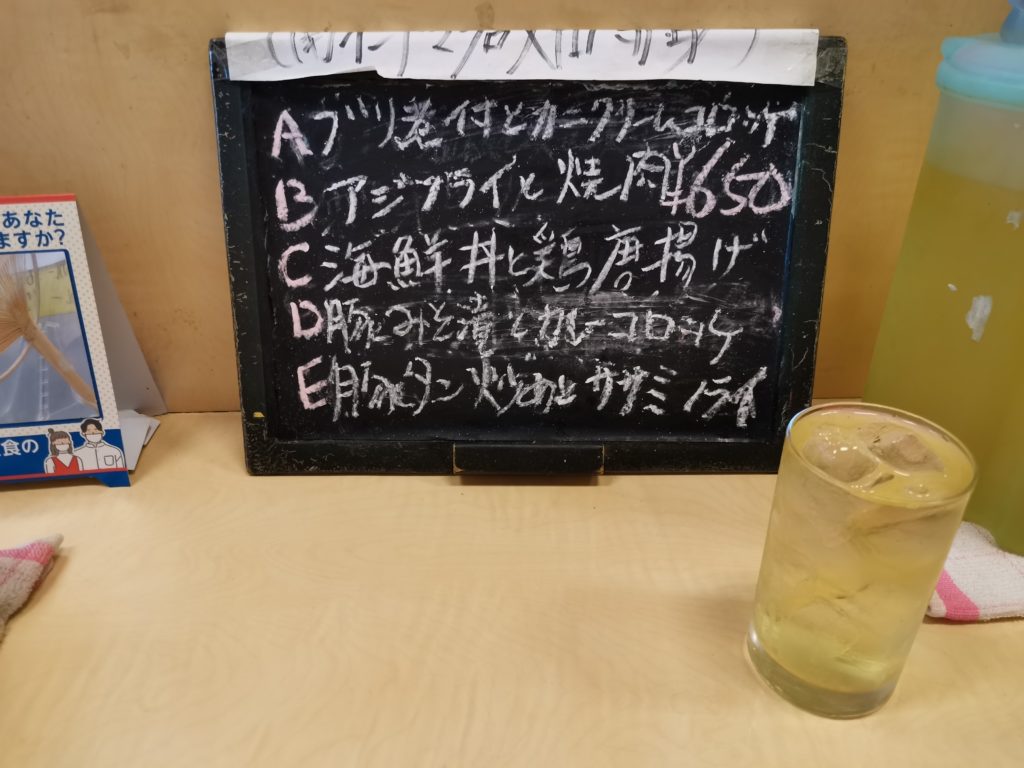 A ブリ煮付とカニクリームコロッケ
B アジフライと焼肉 ¥650
C 海鮮丼と鶏唐揚げ
D 豚みそ漬とカレーコロッケ
E 豚タン炒めとササミフライ
あなた
ますか?
食の